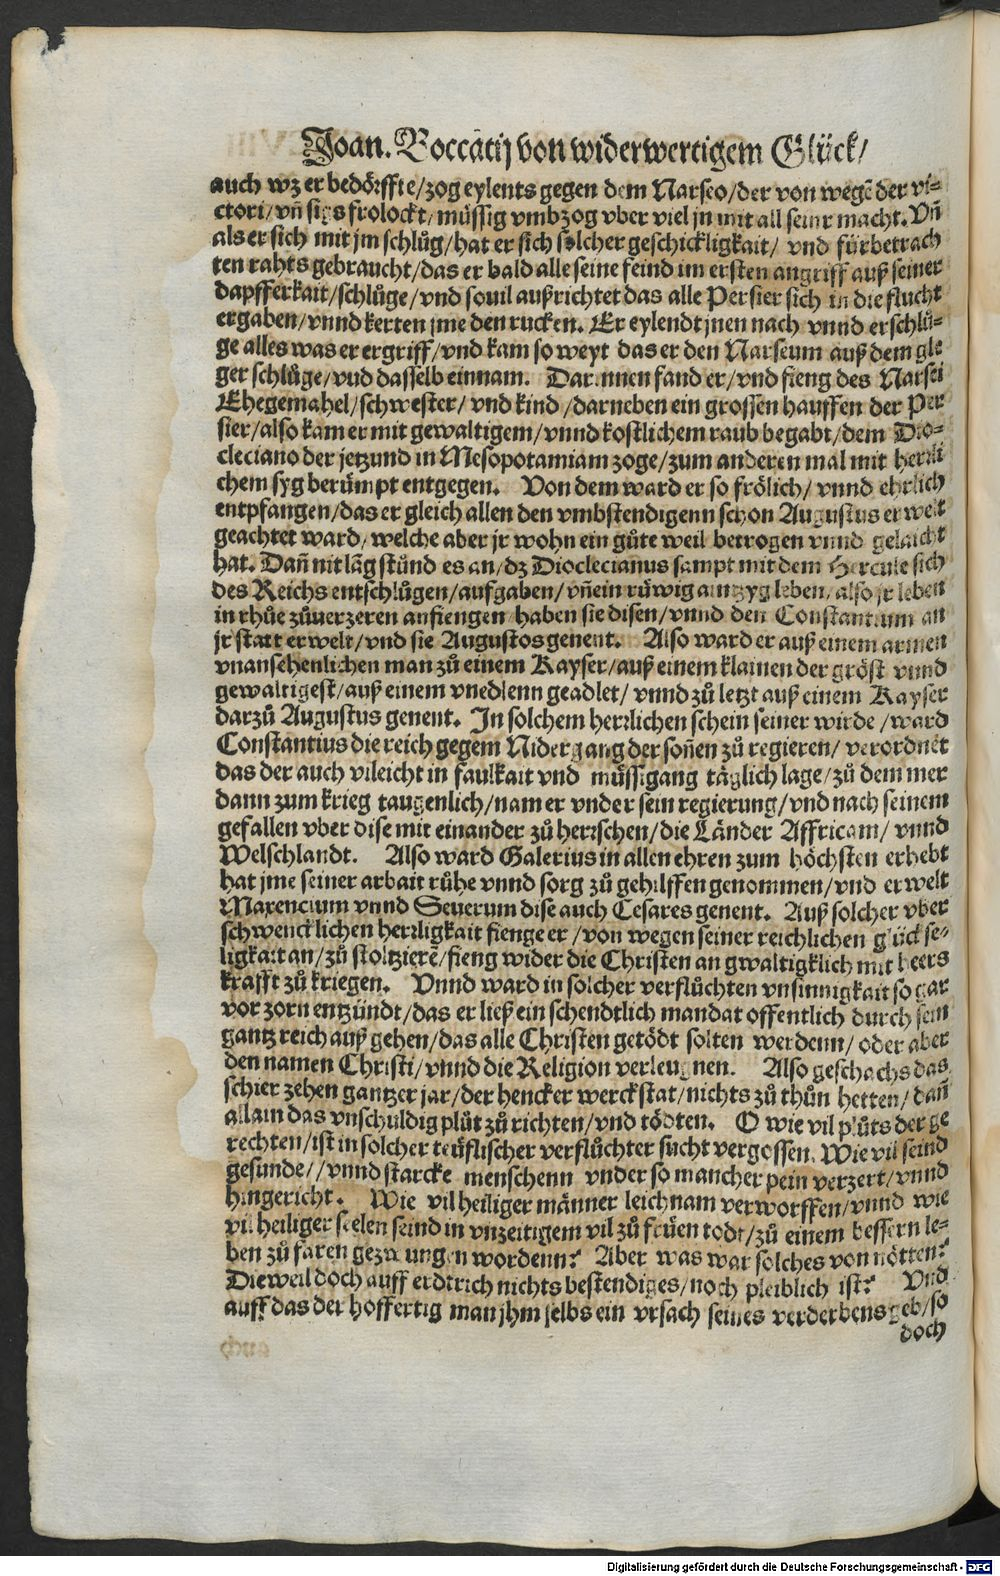 Joan. Boccatij von widerwertigem Glück/
auch wz er bedörffte/zog eylents gegen dem Narseo/der von wegē der vi-
ctori/vn̄ sigs frolockt/müssig vmbzog vber viel jn mit all seinr macht. Vn̄
als er sich mit jm schlůg/hat er sich solcher geschickligkait/ vnd fürbetrach
ten rahts gebraucht/das er bald alle seine feind im ersten angriff auß seiner
dapfferkait/schlůge/vnd souil außrichtet das alle Persier sich in die flucht
ergaben/vnnd kerten jme den rucken. Er eylendt jnen nach vnnd erschlů-
ge alles was er ergriff/vnd kam so weyt das er den Narseum auß dem gle
ger schlůge/vnd dasselb einnam. Darinnen fand er/vnd fieng des Narsei
Ehegemahel/schwester/ vnd kind/darneben ein grossen hauffen der Per
sier/also kam er mit gewaltigem/vnnd kostlichem raub begabt/dem Dio-
cleciano der jetzund in Mesopotamiam zoge/zum anderen mal mit herrli
chem syg berümpt entgegen. Von dem ward er so frölich/ vnnd ehrlich
entpfangen/das er gleich allen den vmbstendigenn schon Augustus erwelt
geachtet ward/welche aber jr wohn ein gůte weil betrogen vnnd gelaicht
hat. Dan̄ nit lāg stůnd es an/dz Dioclecianus sampt mit dem Hercule sich
des Reichs entschlůgen/aufgaben/vn̄ ein rüwig aintzyg leben/also jr leben
in rhůe zůuerzeren anfiengen haben sie disen/vnnd den Constantium an
jr statt erwelt/vnd sie Augustos genent. Also ward er auß einem armen
vnansehenlichen man zů einem Kayser/auß einem klainen der gröst vnnd
gewaltigest/auß einem vnedlenn geadlet/ vnnd zů letzt auß einem Kayser
darzů Augustus genent. In solchem herrlichen schein seiner wirde/ward
Constantius die reich gegem Nidergang der son̄en zů regieren/ verordnet
das der auch vileicht in faulkait vnd müssigang täglich lage/zů dem mer
dann zum krieg taugenlich/nam er vnder sein regierung/vnd nach seinem
gefallen vber dise mit einander zů herrschen/die Länder Affricam/ vnnd
Welschlandt. Also ward Galerius in allen ehren zum höchsten erhebt
hat jme seiner arbait růhe vnnd sorg zů gehilffen genommen/vnd erwelt
Maxencium vnnd Seuerum dise auch Cesares genent. Auß solcher vber
schwencklichen herrligkait fienge er/von wegen seiner reichlichen glückse-
ligkait an/zů stoltzierē/fieng wider die Christen an gwaltigklich mit heers
krafft zů kriegen. Vnnd ward in solcher verflůchten vnsinnigkait so gar
vor zorn entzündt/das er ließ ein schendtlich mandat offentlich durch sein
gantz reich auß gehen/das alle Christen getödt solten werdenn/ oder aber
den namen Christi/vnnd die Religion verleugnen. Also geschachs das
schier zehen gantzer jar/der hencker werckstat/nichts zů thůn hetten/dan̄
allain das vnschuldig plůt zů richten/vnd tödten. O wie vil plůts der ge
rechten/ist in solcher teüflischer verflůchter sucht vergossen. Wie vil seind
gesunde//vnnd starcke menschenn vnder so mancher pein verzert/vnnd
hingericht. Wie vil heiliger männer leichnam verworffen/vnnd wie
vil heiliger seelen seind in vnzeitigem vil zů früen todt/zů einem bessern le-
ben zů faren gezwungen wordenn? Aber was war solches von nötten?
Dieweil doch auff erdtrich nichts bestendiges/noch pleiblich ist? Vnd
auff das der hoffertig man jhm selbs ein vrsach seines verderbens geb/so
doch
Digitalisierung gefördert durch die Deutsche Forschungsgemeinschaft - DFG